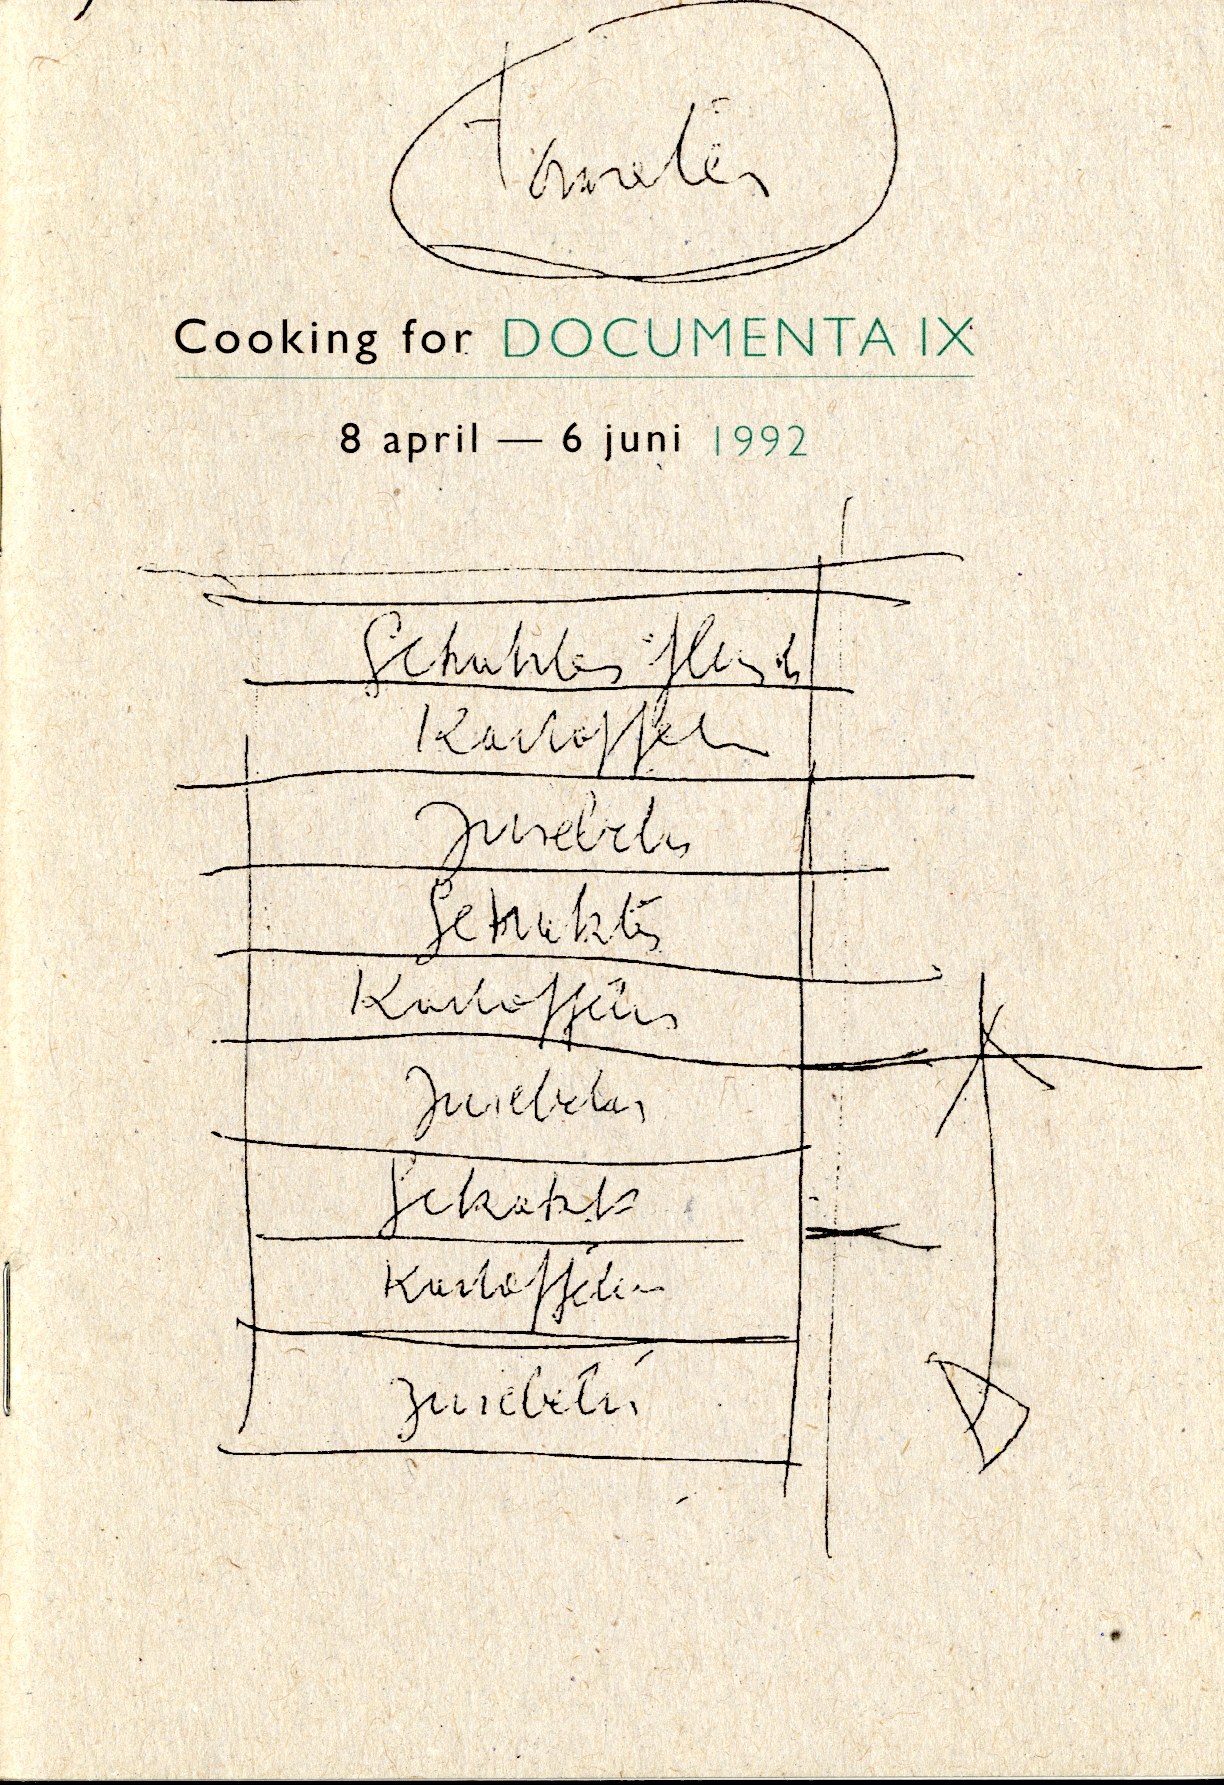 Tomaten
Cooking for DOCUMENTA IX
8 april — 6 juni 1992
Gehaktes fleisch
Kartoffeln
Zwiebeln
Gehaktes
Kartoffeln
Zwiebeln
Gehakt
Kartoffeln
Zwiebeln